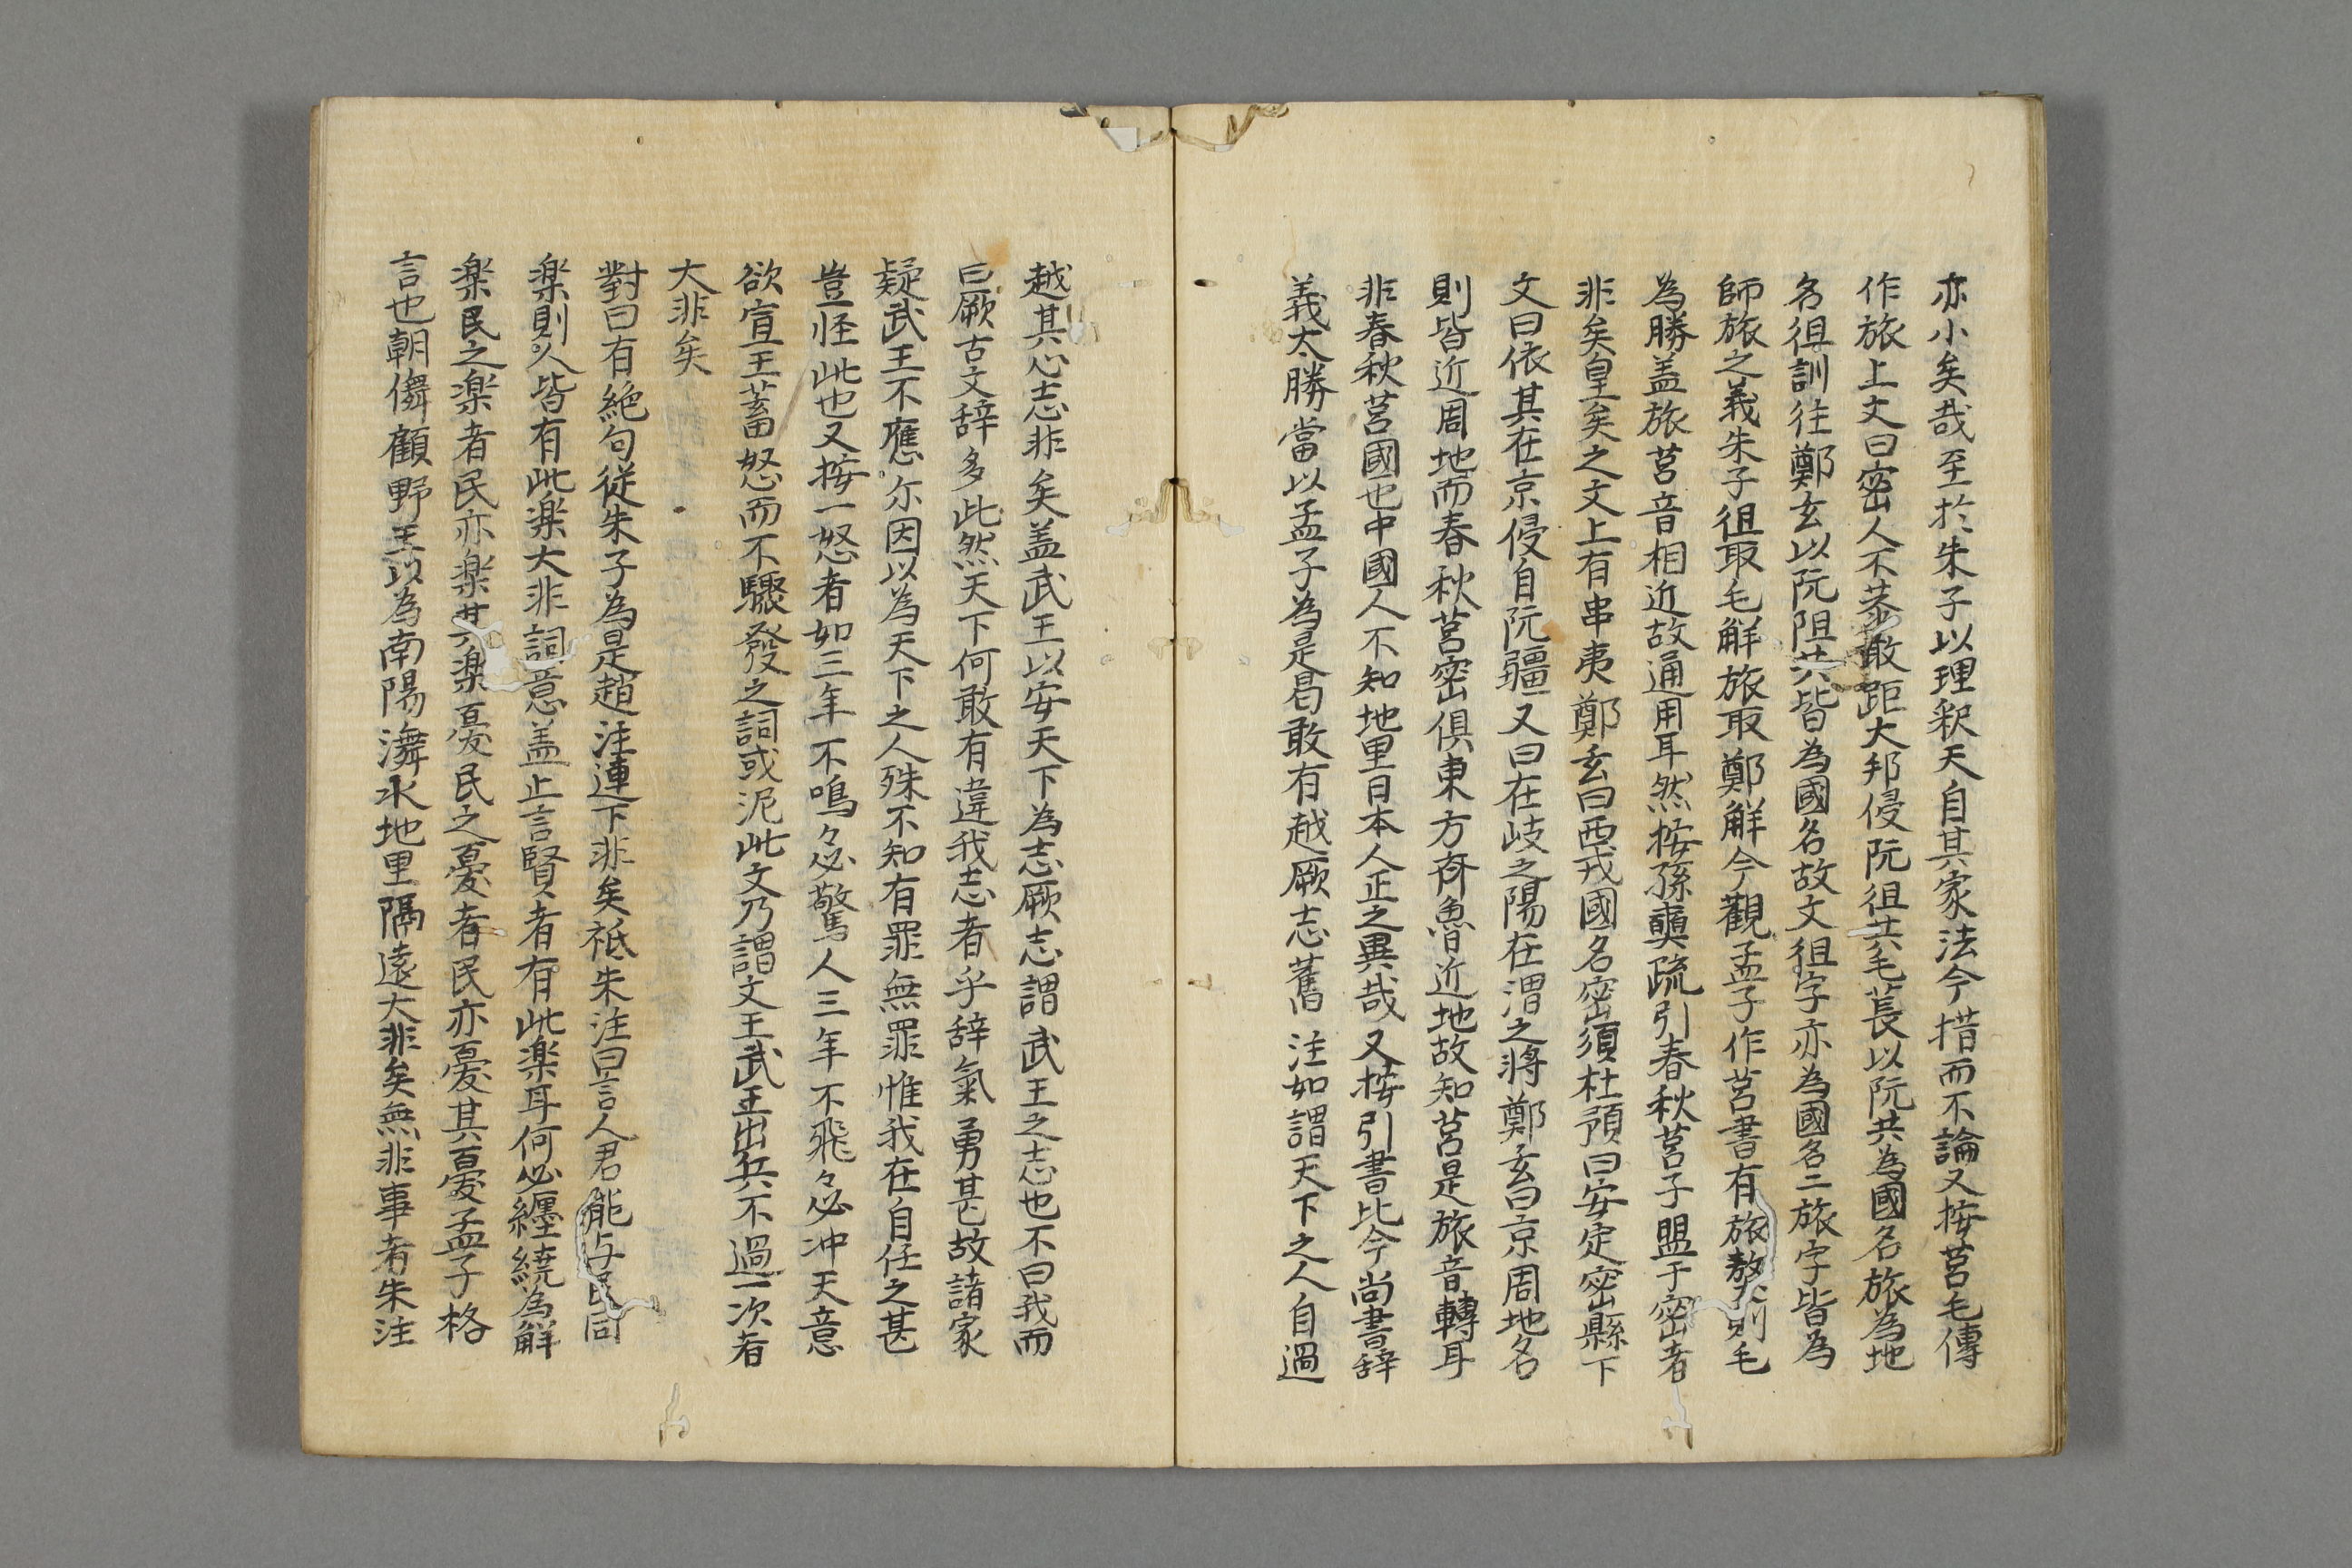 亦小矣哉至於朱子以理釈天自其家法今措而不論又按莒毛傳
作旅上文曰密人不恭敢距大邦侵阮徂共毛萇以阮共為國名旅為地
名徂訓往鄭玄以阮阻共皆為國名故文徂字亦為國名二旅字皆為
師旅之義朱子徂取毛解旅取鄭解今觀孟子作莒書有旅獒則毛
為勝盖旅莒音相近故通用耳然按孫奭疏引春秋莒子盟于密者
非矣皇矣之文上有串夷鄭玄曰西戎國名密須杜預曰安定密縣下
文曰依其在京侵自阮疆又曰在岐之陽在渭之將鄭玄曰京周地名
則皆近周地而春秋莒密俱東方斉魯近地故知莒是旅音轉耳
非春秋莒國也中國人不知地里日本人正之異哉又按引書比今尚書辞
義太勝當以孟子為是曷敢有越厥志舊注如謂天下之人自過
越其心志非矣盖武王以安天下為志厥志謂武王之志也不曰我而
曰厥古文辞多此然天下何敢有違我志者乎辞氣勇甚故諸家
疑武王不應尓因以為天下之人殊不知有罪無罪惟我在自任之甚
豈怪此也又按一怒者如三年不鳴々必驚人三年不飛々必冲天意
欲宣王蓄怒而不驟發之詞或泥此文乃謂文王武王出兵不過一次者
大非矣
對曰有絶句従朱子為是趙注連下非矣祗朱注曰言人君能与民同
楽則人皆有此楽大非詞意盖止言賢者有此楽耳何必纒繞為解
楽民之楽者民亦楽其楽憂民之憂者民亦憂其憂孟子格
言也朝儛顧野王以為南陽潕水地里隔遠大非矣無非事者朱注